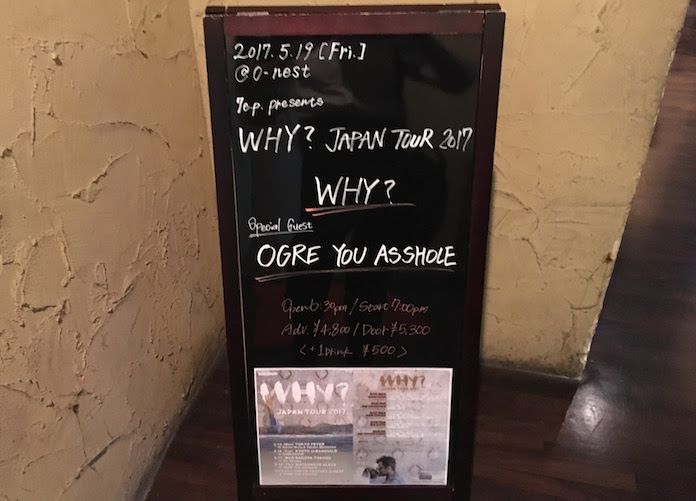 2017.5.19 [Fri.]
@O-nest
7e.p. presents
WHY? JAPAN TOUR 2017
WHY?
Special Guest
OGRE YOU ASSHOLE
Open 6:30pm / Start 7:00pm
Adv. ¥4,800 / Door ¥5,300
< +1 Drink ¥500 >
WHY?
JAPAN TOUR 2017
WHY?
JAPAN TOUR 2017